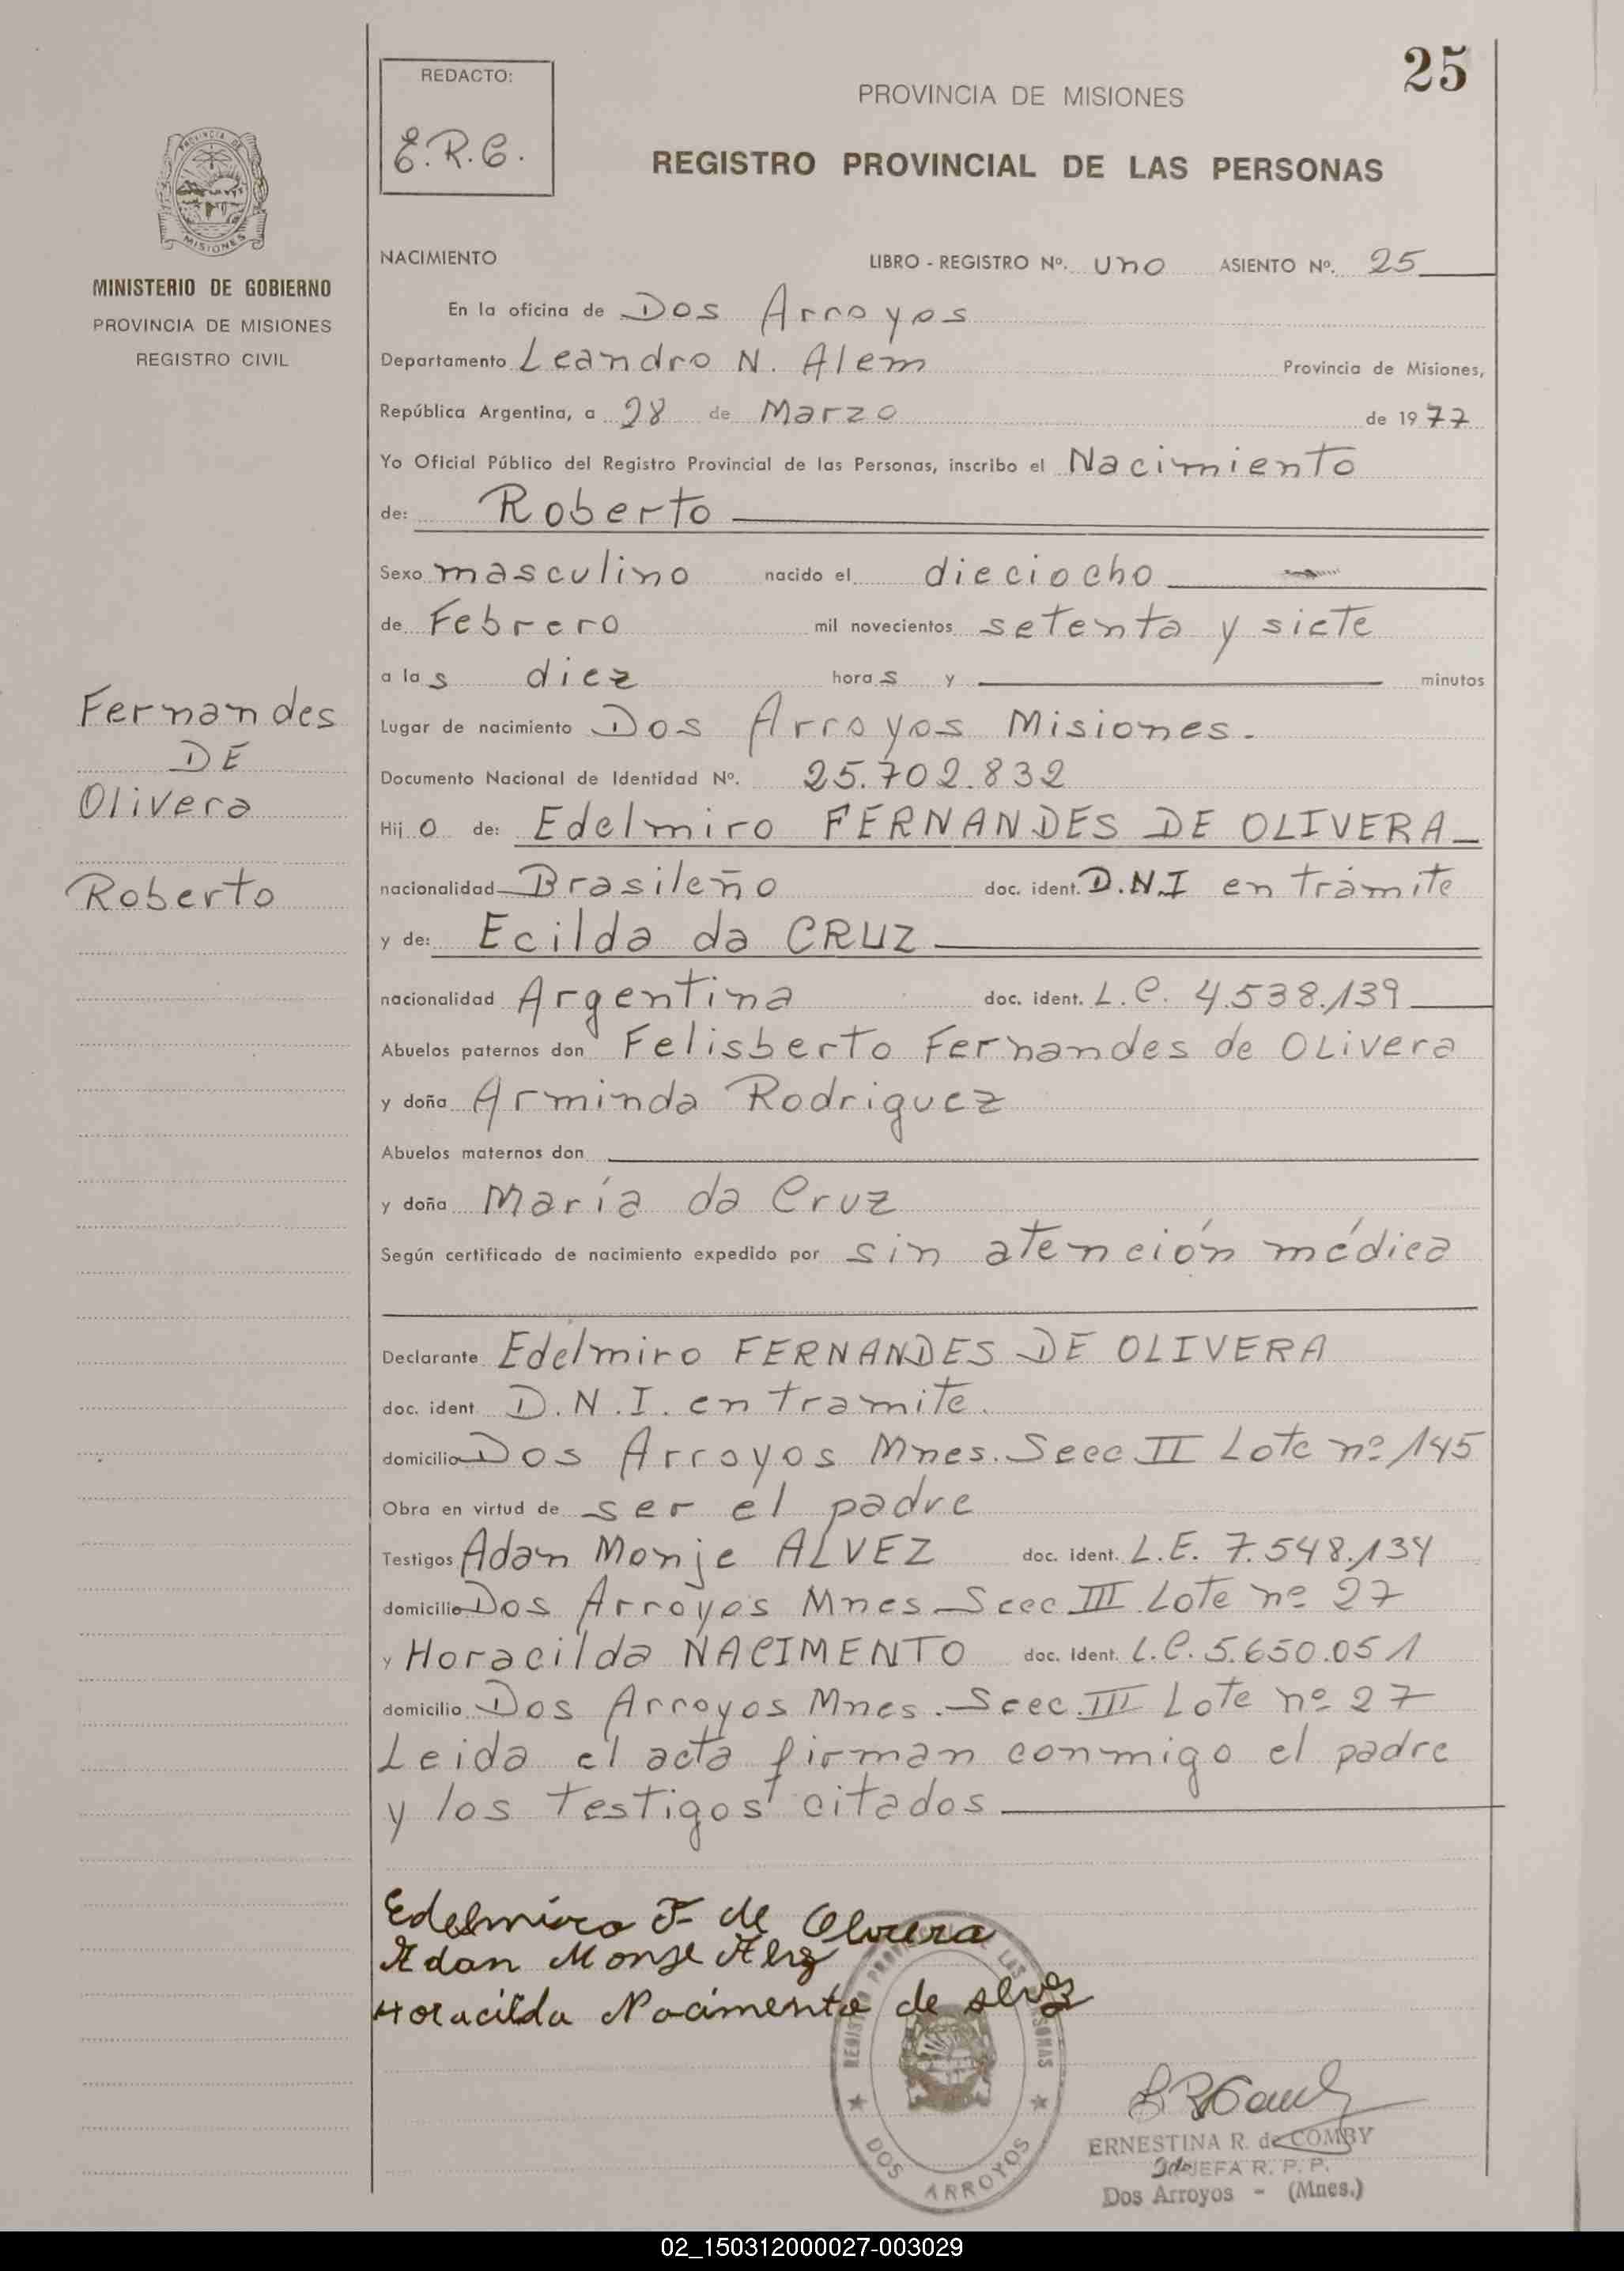 25
REDACTO:
E.R.C.
PROVINCIA DE MISIONES
REGISTRO PROVINCIAL DE LAS PERSONAS
PROVINCIA DE
MISIONES
MINISTERIO DE GOBIERNO
PROVINCIA DE MISIONES
REGISTRO CIVIL
NACIMIENTO LIBRO - REGISTRO Nº. uno ASIENTO Nº. 25
En la oficina de Dos Arroyos
Departamento Leandro N. Alem Provincia de Misiones,
República Argentina, a 28 de Marzo de 1977
Yo Oficial Público del Registro Provincial de las Personas, inscribo el Nacimiento
de: Roberto
Sexo masculino nacido el dieciocho
de Febrero mil novecientos setenta y siete
a las diez horas y minutos
Fernandes
DE
Olivera
Roberto
Lugar de nacimiento Dos Arroyos Misiones.
Documento Nacional de Identidad Nº. 25.702.832
Hijo de: Edelmiro FERNANDES DE OLIVERA
nacionalidad Brasileño doc. ident. D.N.I en trámite
y de: Ecilda da CRUZ
nacionalidad Argentina doc. ident. L.C. 4.538.139
Abuelos paternos don Felisberto Fernandes de Olivera
y doña Arminda Rodriguez
Abuelos maternos don
y doña María da Cruz
Según certificado de nacimiento expedido por sin atención médica
Declarante Edelmiro FERNANDES DE OLIVERA
doc. ident. D.N.I. en tramite.
domicilio Dos Arroyos Mnes. Secc II Lote nº 145
Obra en virtud de ser el padre
Testigos Adan Monje ALVEZ doc. ident. L.E. 7.548.134
domicilio Dos Arroyos Mnes. Secc III Lote nº 27
y Horacilda NACIMENTO doc. ident. L.C. 5.650.051
domicilio Dos Arroyos Mnes. Secc. III Lote nº 27
Leida el acta firman conmigo el padre
y los testigos citados
Edelmiro F. de Olivera
Adan Monje
Horacilda Nacimento de
REGISTRO PROVINCIAL DE LAS PERSONAS
DOS ARROYOS
ERNESTINA R. de COMBY
JEFA R. P. P.
Dos Arroyos - (Mnes.)
02_150312000027-003029